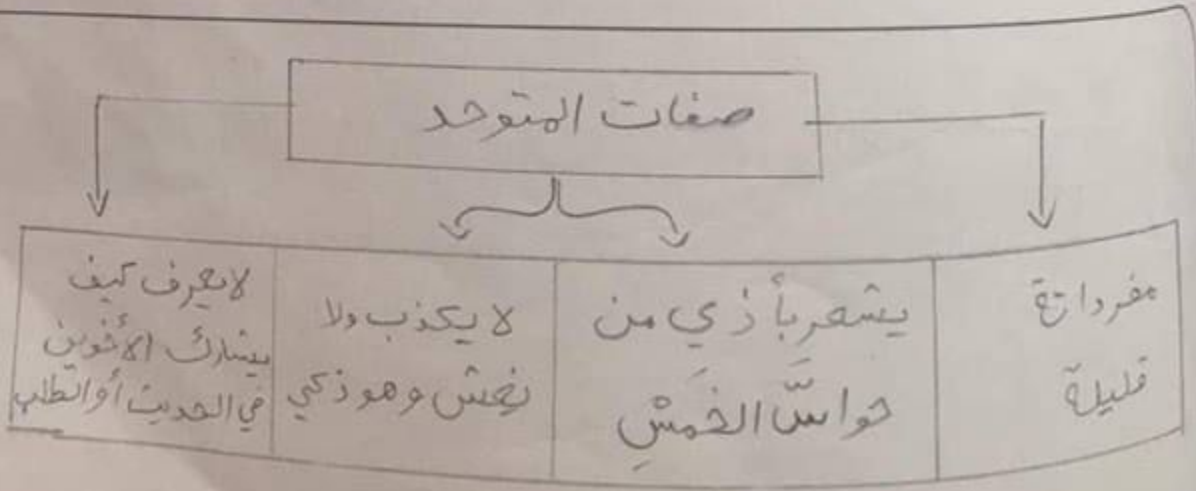 صفات المتوحد
مفرداتة
قليلة
يشعر بأذي من
حواسَّ الخَمسِ
لا يكذب ولا
يغش وهو ذكي
لا يعرف كيف
يشارك الأخرين
في الحديث أو الطلب